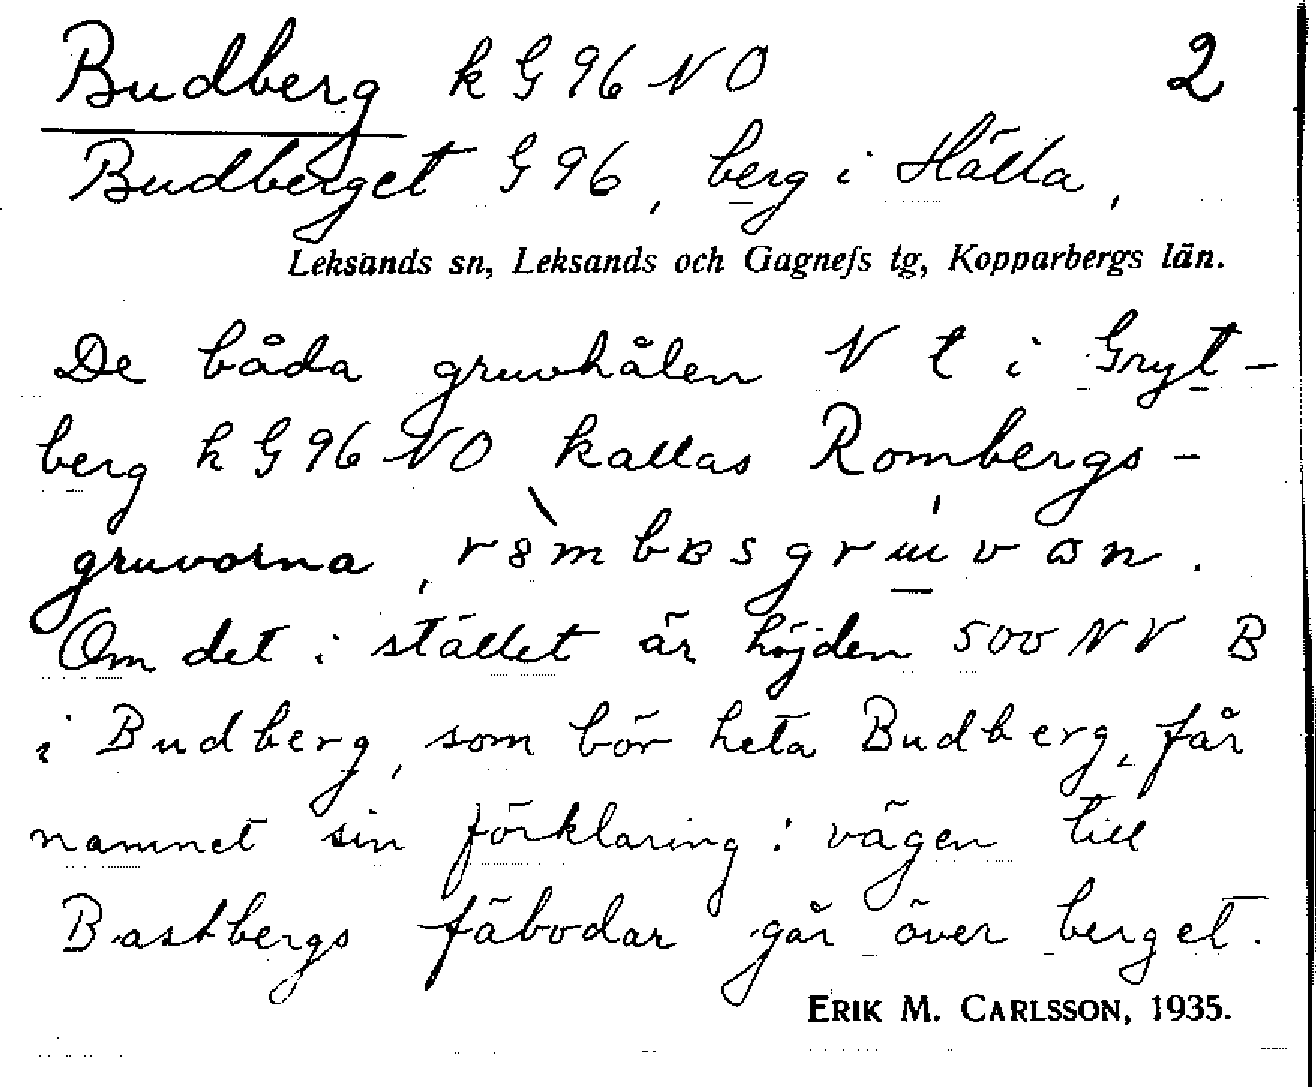 Budberg k G 96 N O 2
Budberget G 96, berg i Hälla,
Leksands sn, Leksands och Gagnefs tg, Kopparbergs län.
De båda gruvhålen N t i Gryt-
berg k G 96 NO kallas Rombergs-
gruvorna,
Om det i stället är höjden 500 N V B
i Budberg, som bör heta Budberg, får
namnet sin förklaring: vägen till
Bastbergs fäbodar går över berget.
ERIK M. CARLSSON, 1935.